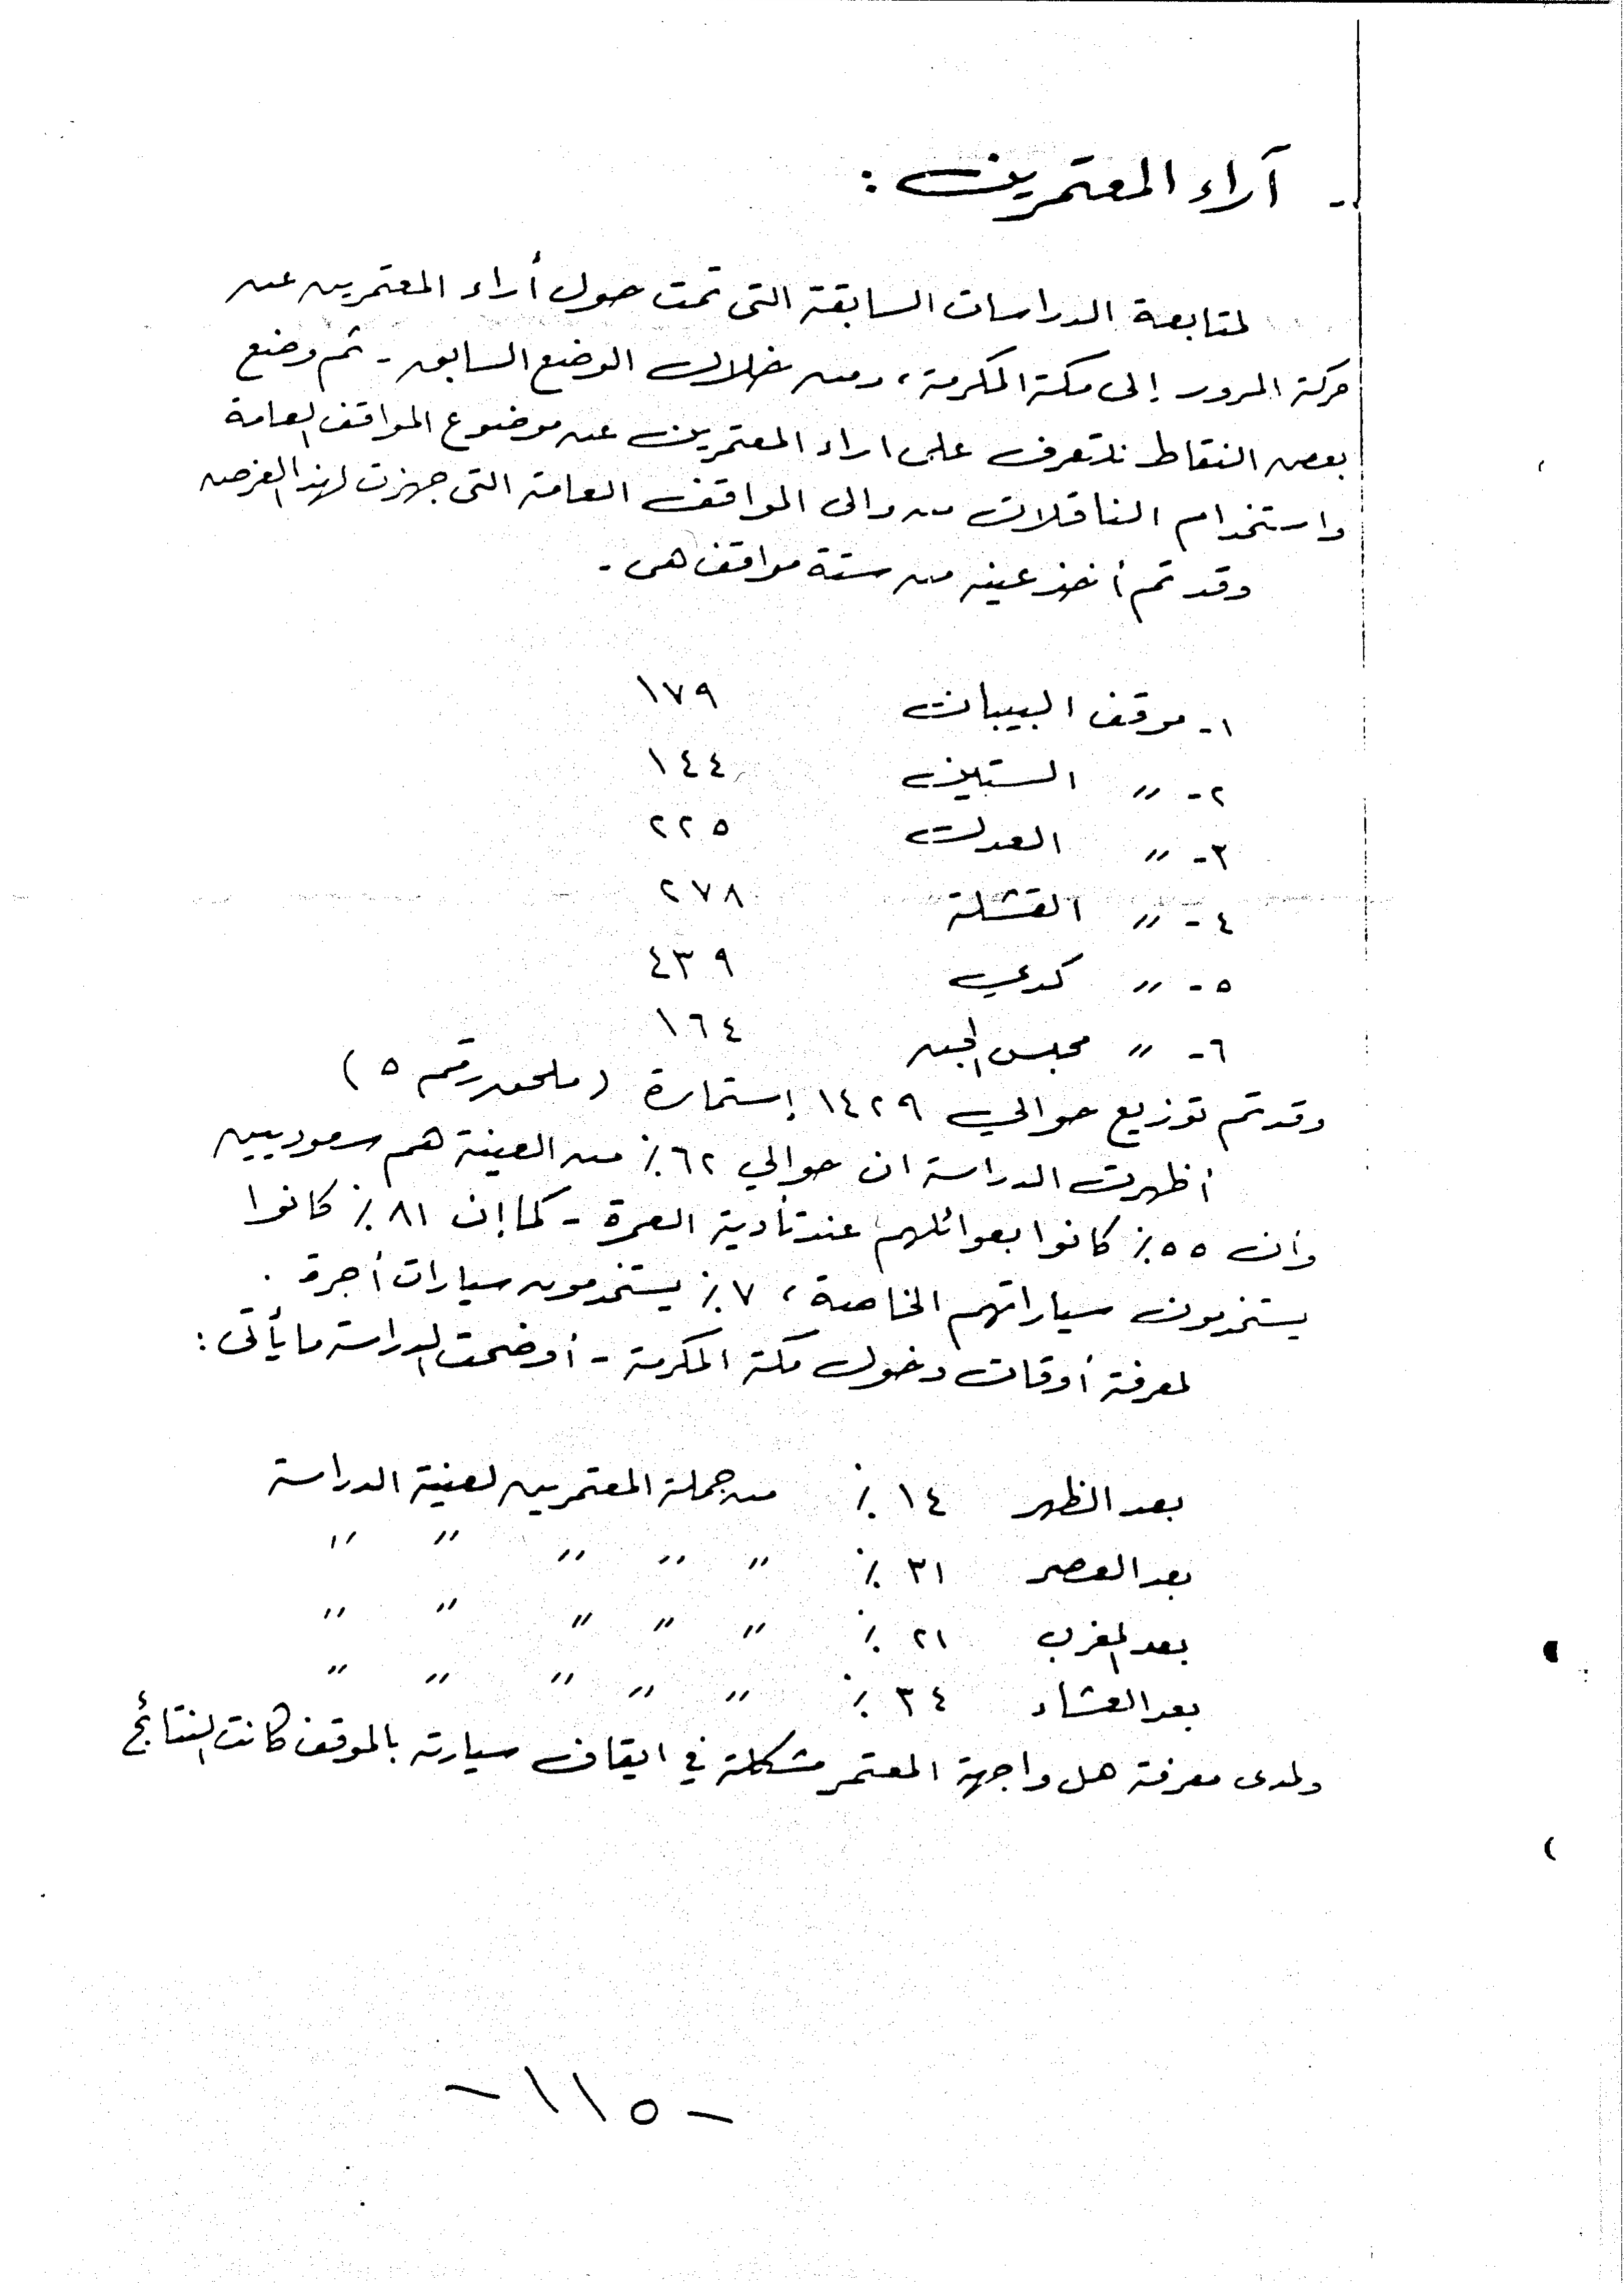 - آراء المعتمرين :
لمتابعة الدراسات السابقة التى تمت حول أراء المعتمرين عن
حركة المرور إلى مكة المكرمة، ومن خلال الوضع السابق - تم وضع
بعض النقاط للتعرف على اراء المعتمرين عن موضوع المواقف العامة
واستخدام الناقلات من والى المواقف العامة التى جهزت لهذا الغرض
وقد تم أخذ عينه من ستة مواقف هى -
١- موقف البيبان ١٧٩
٢- " الستين ١٤٤
٣- " العدل ٢٢٥
٤- " القشلة ٢٧٨
٥- " كدي ٤٣٩
٦- " مجلس الجن ١٦٤
وقد تم توزيع حوالي ١٤٢٩ إستمارة (ملحق رقم ٥)
أظهرت الدراسة ان حوالي ٦٢٪ من العينة هم سعوديين
وأن ٥٥٪ كانوا بعوائلهم عند تأدية العمرة - كما إن ٨١٪ كانوا
يستخدمون سياراتهم الخاصة، ٧٪ يستخدمون سيارات أجرة .
لمعرفة أوقات دخول مكة المكرمة - أوضحت الدراسة ما يأتى :
بعد الظهر ١٤٪ من جملة المعتمرين لعينة الدراسة
بعد العصر ٣١٪ " " " " "
بعد المغرب ٢١٪ " " " " "
بعد العشاء ٣٤٪ " " " " "
ولمدى معرفة هل واجهة المعتمر مشكلة في ايقاف سيارته بالموقف كانت النتائج
- ١١٥ -